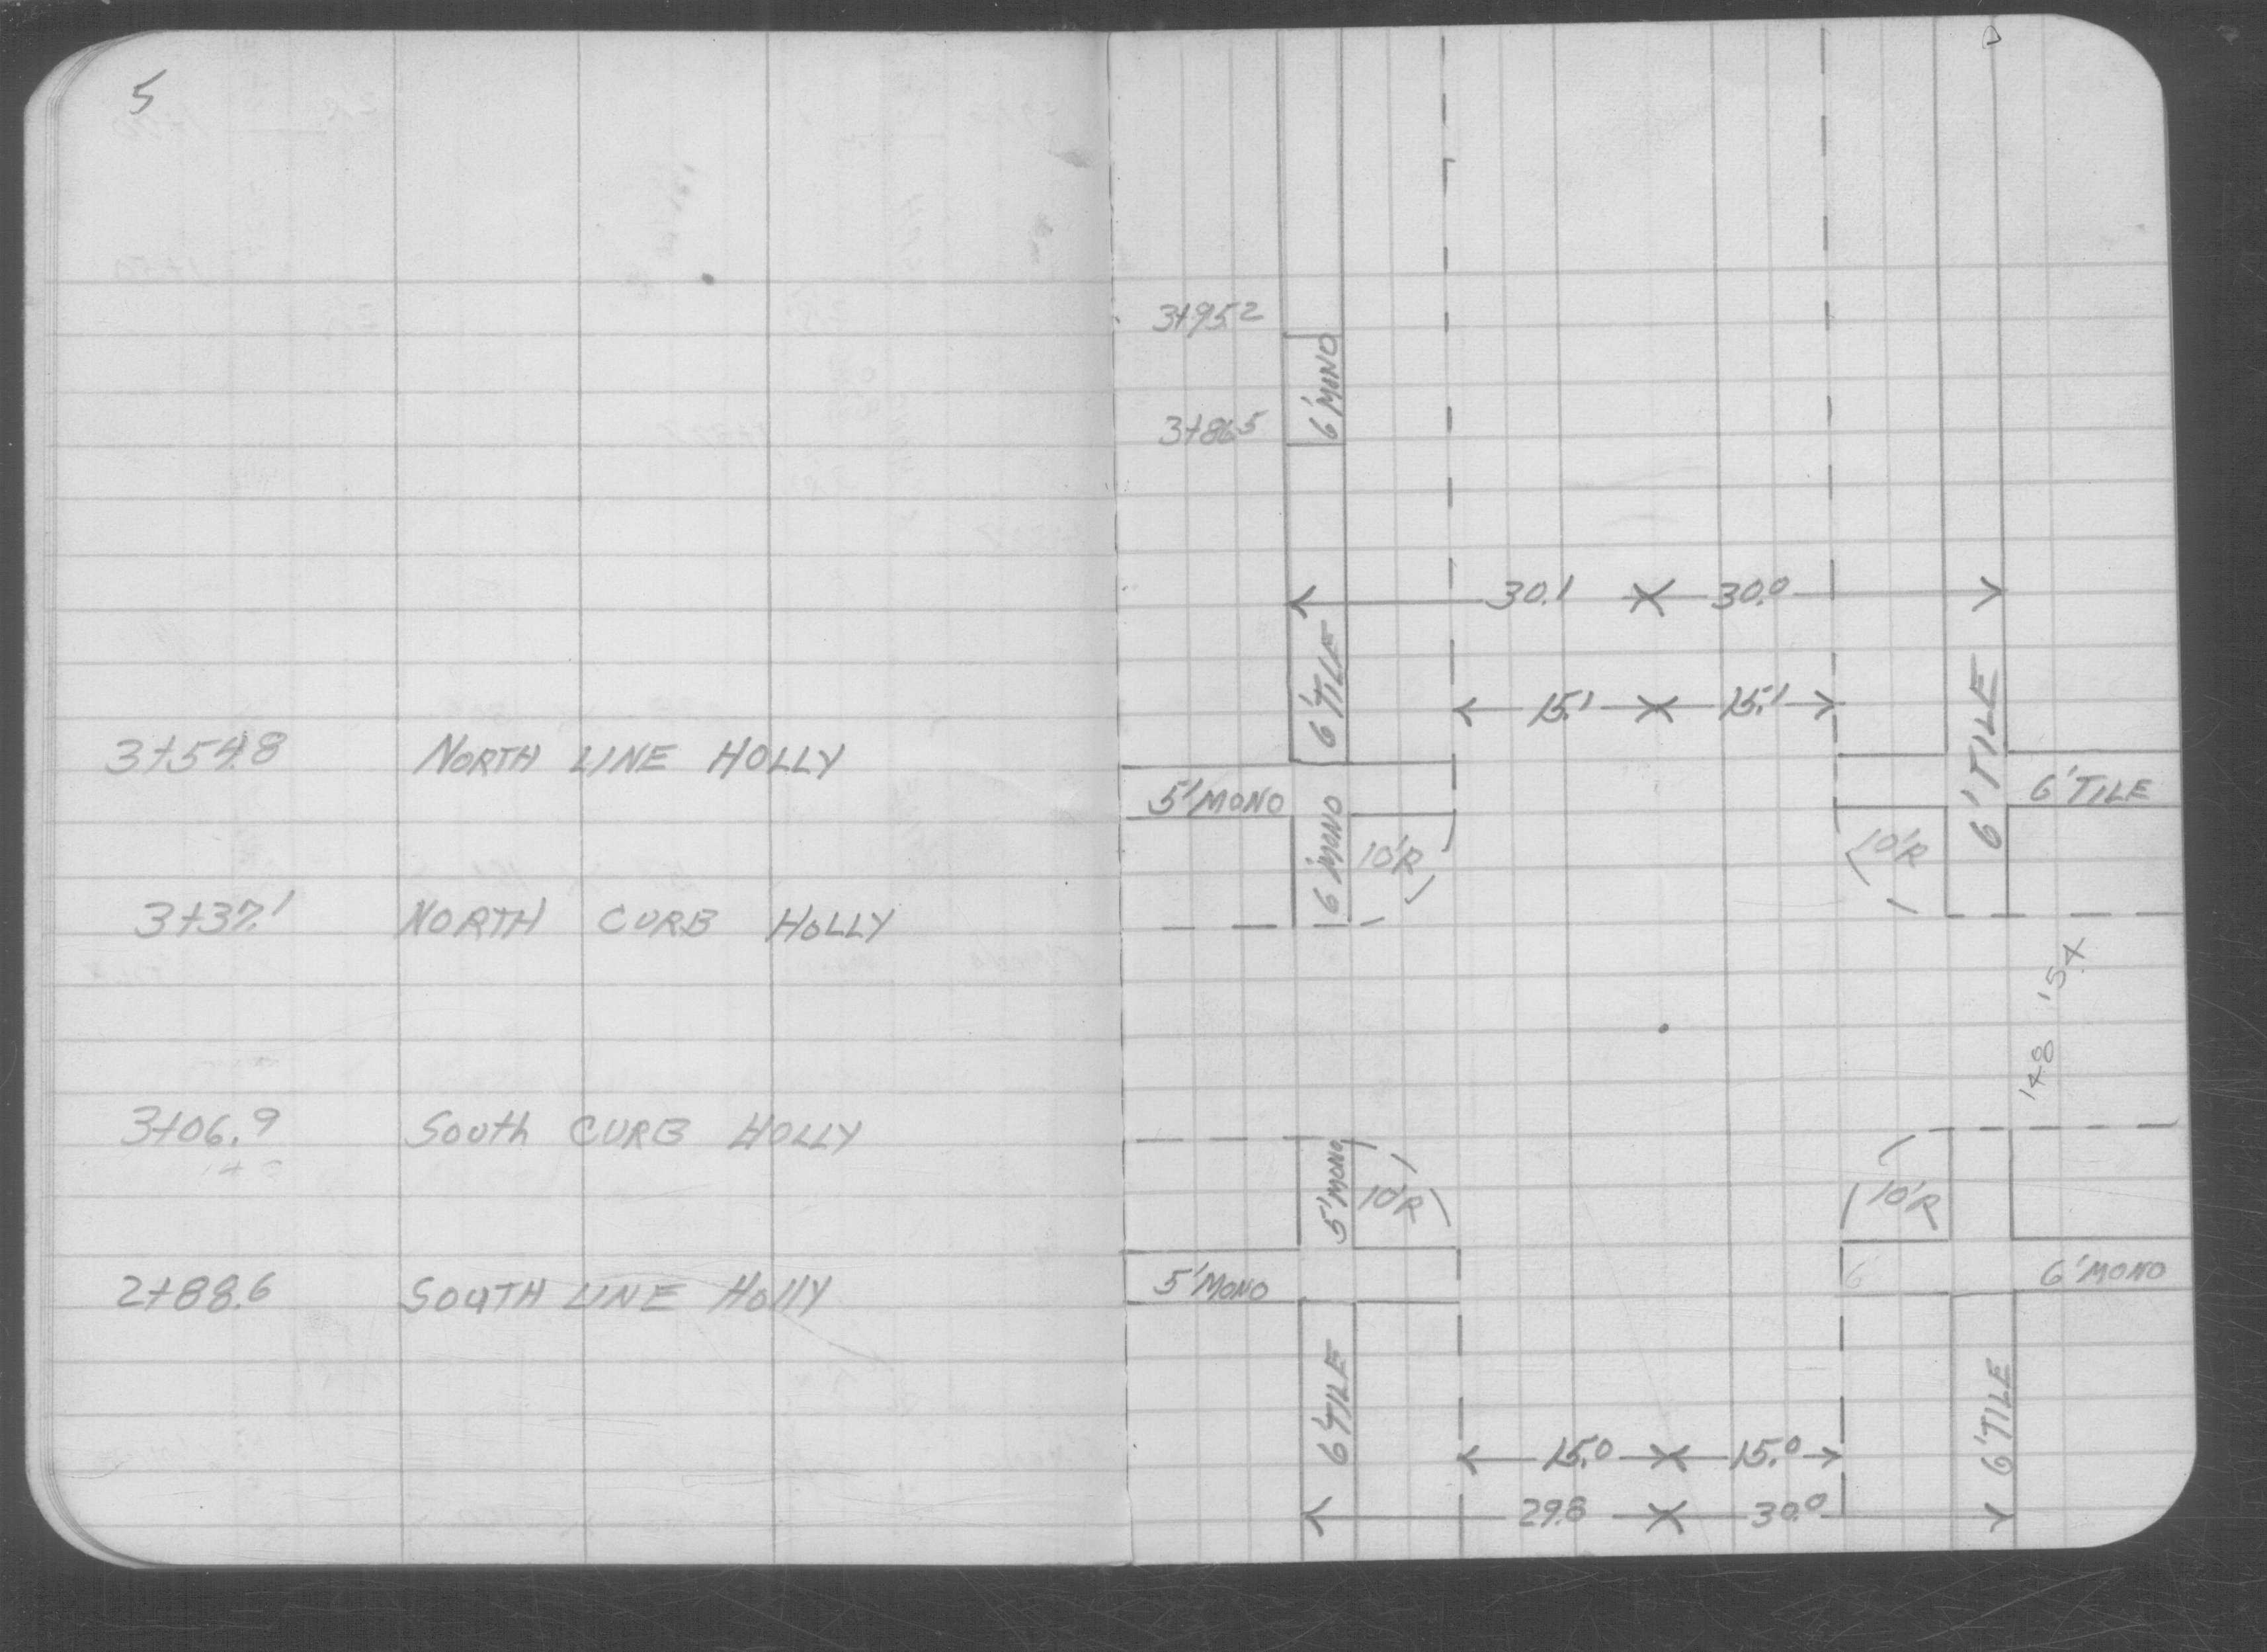 5
3+54.8 NORTH LINE HOLLY
3+37.1 NORTH CURB HOLLY
3+06.9 South CURB HOLLY
2+88.6 SOUTH LINE HOLLY
3+95.2
6' MONO
3+86.5
30.1 30.0
6' TILE
15.1 15.1
6' TILE
5' MONO
6' TILE
6' MONO
10'R
10'R
5' MONO
10'R
10'R
5' MONO
6
6' MONO
6' TILE
6' TILE
15.0 15.0
29.8 30.0